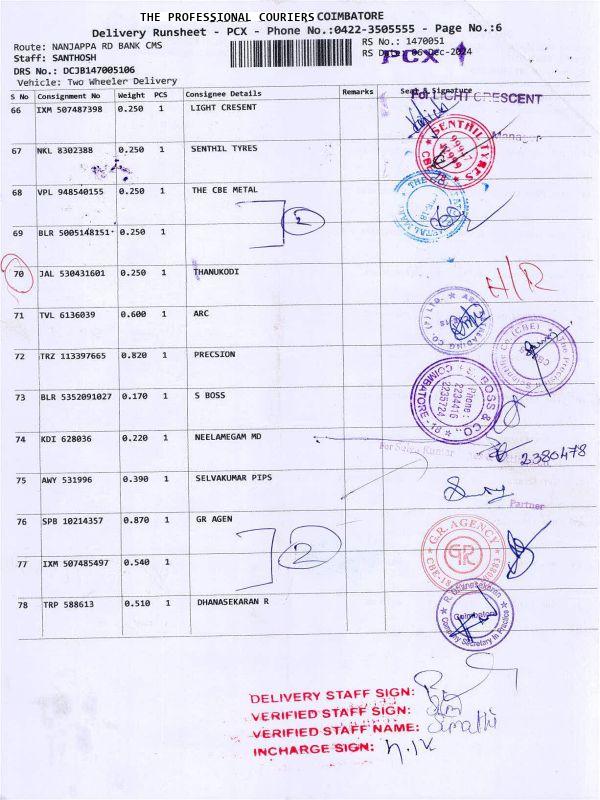 THE PROFESSIONAL COURIERS COIMBATORE
Delivery Runsheet - PCX - Phone No.:0422-3505555 - Page No.:6
Route: NANJAPPA RD BANK CMS
RS No.: 1470051
Staff: SANTHOSH
RS Date: 06-Dec-2024
PCX
DRS No.: DCJB147005106
Vehicle: Two Wheeler Delivery
S No Consignment No Weight PCS Consignee Details Remarks Seal & Signature
66 IXM 507487398 0.250 1 LIGHT CRESENT
For LIGHT CRESCENT
Manager
67 NKL 8302388 0.250 1 SENTHIL TYRES
SENTHIL TYRES
68 VPL 948540155 0.250 1 THE CBE METAL
2
69 BLR 5005148151 0.250 1
70 JAL 530431601 0.250 1 THANUKODI
H/R
71 TVL 6136039 0.600 1 ARC
72 TRZ 113397665 0.820 1 PRECSION
73 BLR 5352091027 0.170 1 S BOSS
S. BOSS & CO.
COIMBATORE-18
Phone:
2234416
2235724
74 KDI 628036 0.220 1 NEELAMEGAM MD
2380478
75 AWY 531996 0.390 1 SELVAKUMAR PIPS
For Selva Kumar
Partner
76 SPB 10214357 0.870 1 GR AGEN
2
G.R. AGENCY
GR
77 IXM 507485497 0.540 1
78 TRP 588613 0.510 1 DHANASEKARAN R
R. Dhanasekaran
Coimbatore
Company Secretary in Practice
DELIVERY STAFF SIGN:
VERIFIED STAFF SIGN:
VERIFIED STAFF NAME:
INCHARGE SIGN: